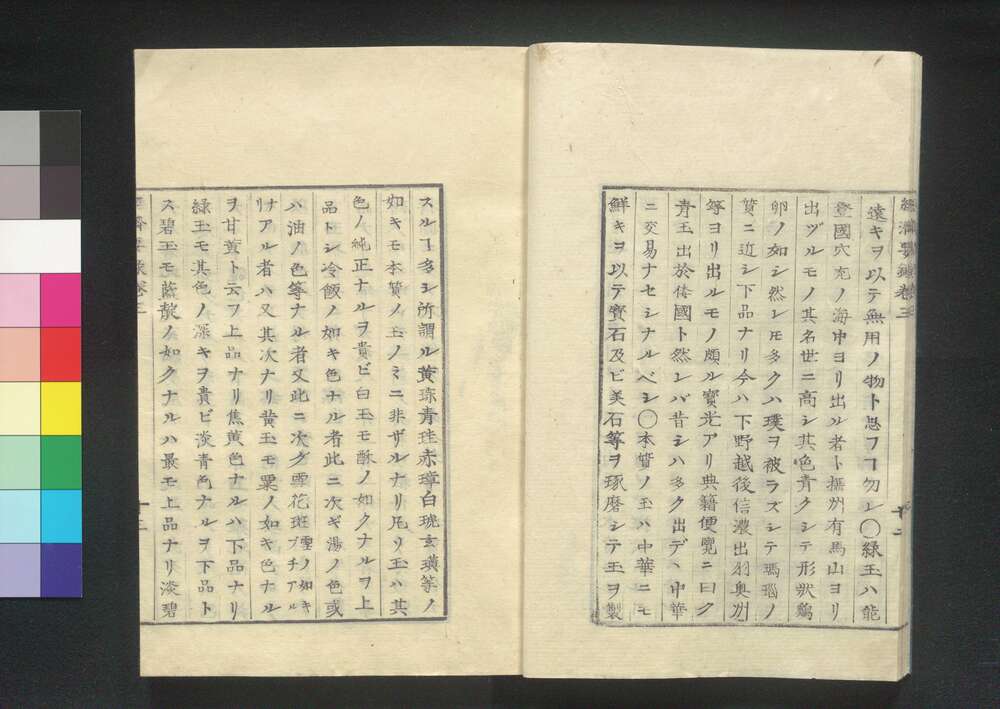 經濟要録卷三
十二
遠キヲ以テ無用ノ物ト思フヿ勿レ〇綠玉ハ能
登國穴充ノ海中ヨリ出ル者ト攝州有馬山ヨリ
出ヅルモノ其名世ニ高シ其色青クシテ形狀鷄
卵ノ如シ然レ𪜈多クハ璞ヲ被ラズシテ瑪瑙ノ
質ニ近シ下品ナリ今ハ下野越後信濃出羽奥州
等ヨリ出ルモノ頗ル寶光アリ典籍便覽ニ曰ク
青玉出於倭國ト然レバ昔シハ多ク出デヽ中華
ニ交易ナセシナルベシ〇本質ノ玉ハ中華ニモ
鮮キヲ以テ寶石及ビ美石等ヲ琢磨シテ玉ヲ製
スルヿ多シ所謂ル黄琮青珪赤璋白琥玄璜等ノ
如キモ本質ノ玉ノミニ非ザルナリ凡リ玉ハ其
色ノ純正ナルヲ貴ビ白玉モ酥ノ如クナルヲ上
品トシ冷飯ノ如キ色ナル者此ニ次ギ湯ノ色或
ハ油ノ色等ナル者又此ニ次グ雪花斑雪ノ如キブチアル
リナアル者ハ又其次ナリ黄玉モ栗ノ如キ色ナル
ヲ甘黄ト云フ上品ナリ焦黄色ナルハ下品ナリ
綠玉モ其色ノ深キヲ貴ビ淡青色ナルヲ下品ト
ス碧玉モ藍靛ノ如クナルハ最モ上品ナリ淡碧
十三